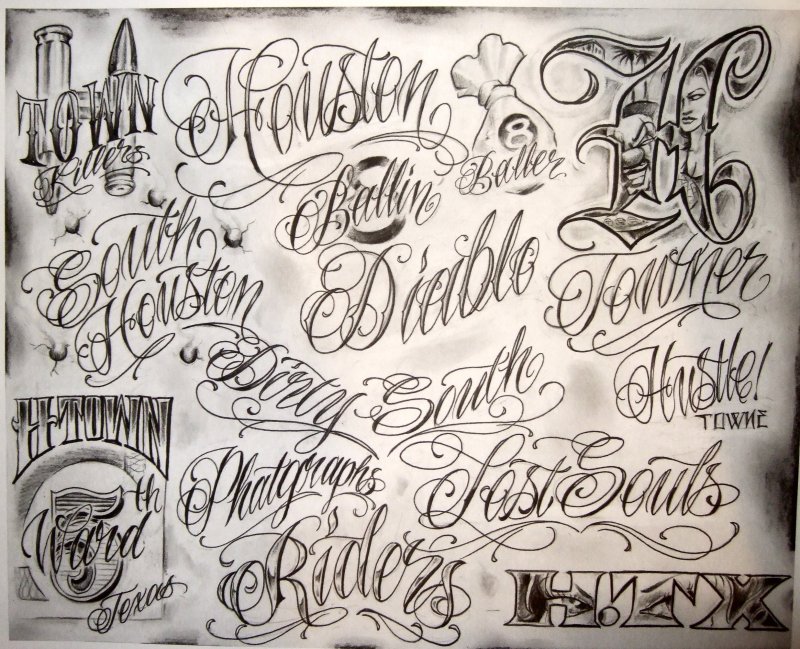 TOWN
Killers
Houston
8
Ballin
Baller
H
Towner
South
Houston
Diablo
Dirty South
Hustle!
TOWNE
H-TOWN
5th
Ward
Texas
Phatgraphs
Lost Souls
Riders